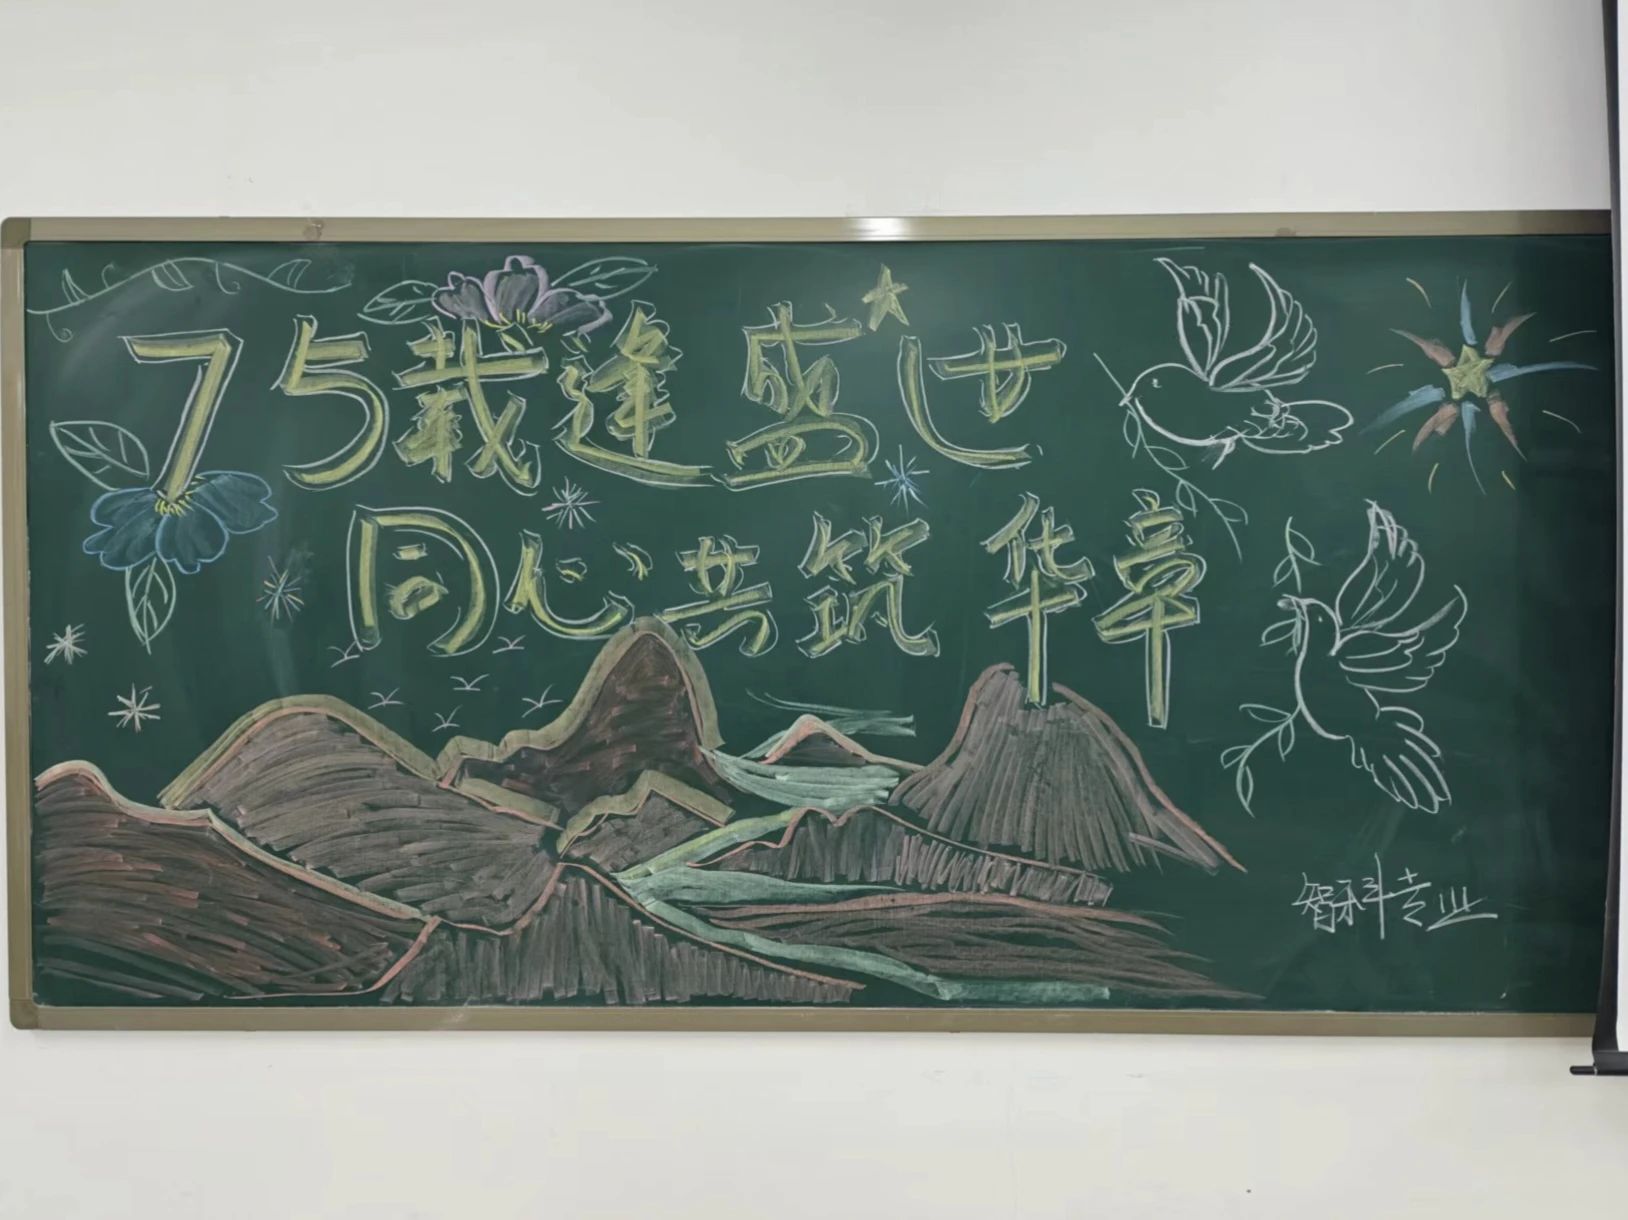 75载逢盛世
同心共筑华章
智科专业